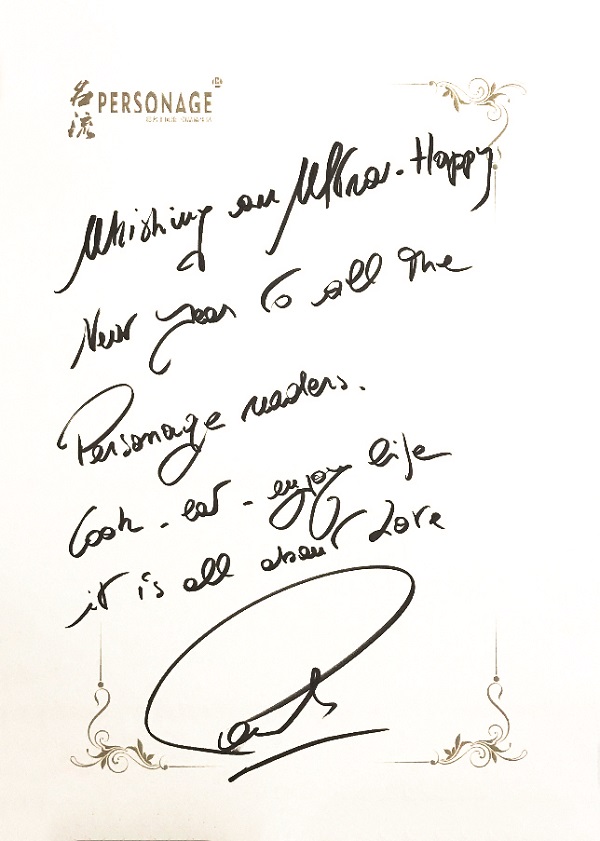 名流 PERSONAGE
Whishing an Ultra-Happy
New year to all the
Personage readers.
Cook - eat - enjoy life
it is all about Love